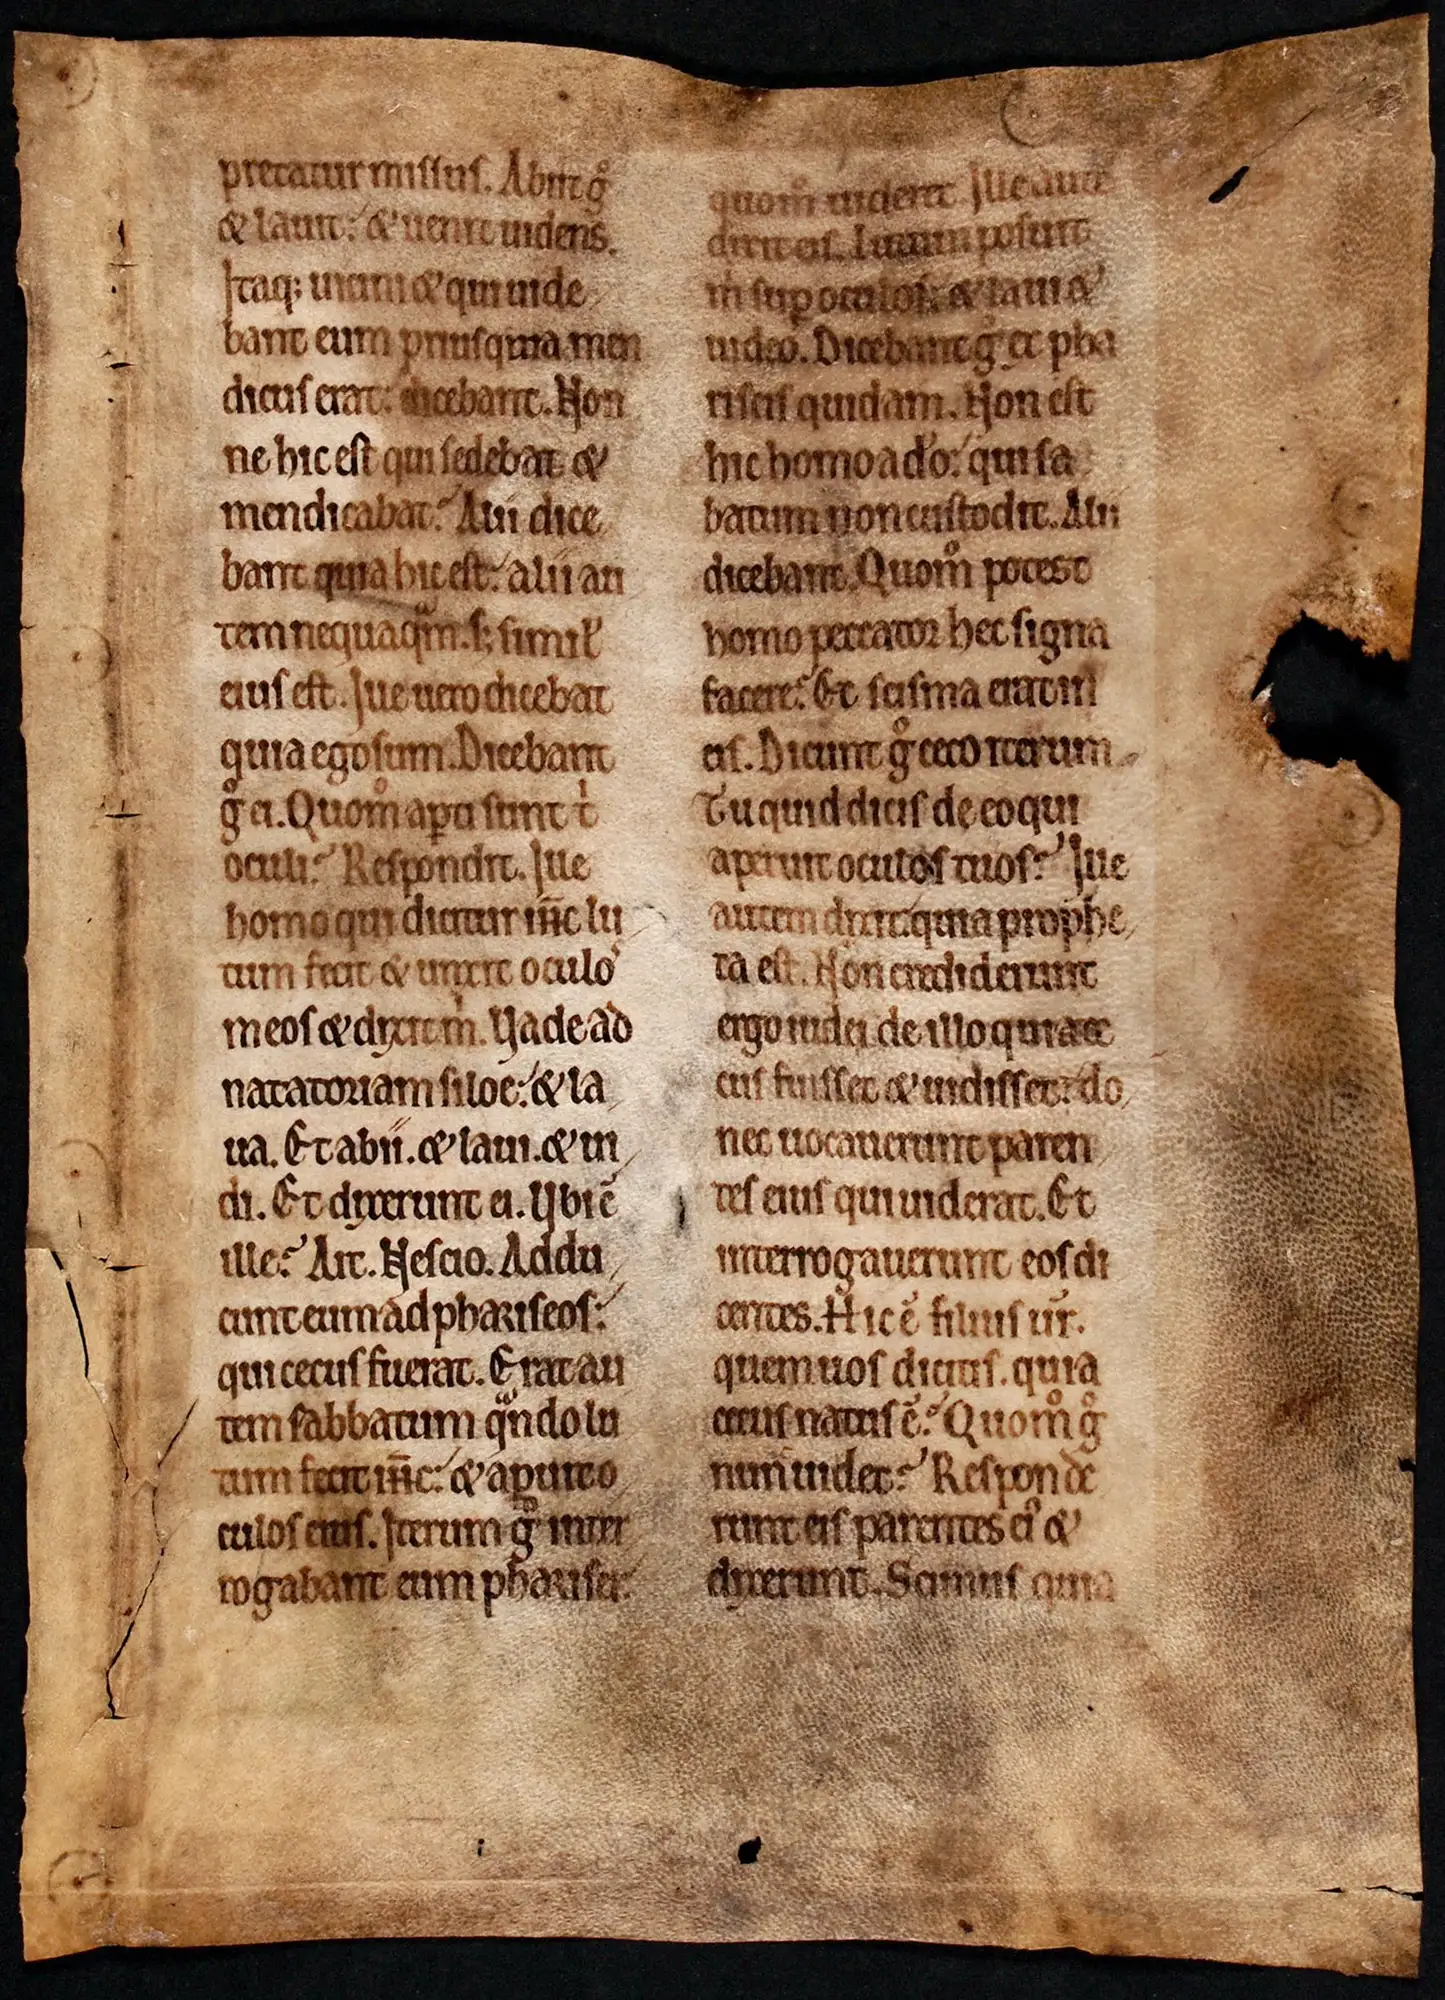 pretatur missus. Abiit gͦ
& lauit: & uenit uidens.
Itaq; uicini & qui uide
bant eum priusquia men
dicus erat: dicebant. Non
ne hic est qui sedebat &
mendicabat? Alii dice
bant quia hic est: alii au
tem nequaq̃m. s; simil'
eius est. Ille uero dicebat
quia ego sum. Dicebant
gͦ ei. Quom̊ apti sunt t̍
oculi? Respondit. Ille
homo qui dicitur ih̅c lu
tum fecit & unxit oculo'
meos & dixit m̍. Uade ad
natatoriam siloe: & la
ua. Et abii. & laui. & ui
di. Et dixerunt ei. Ubi ē
ille? Ait. Nescio. Addu
cunt eum ad phariseos:
qui cecus fuerat. Erat au
tem sabbatum qᵃndo lu
tum fecit ih̅c: & apuit o
culos eius. Iterum gͦ inter
rogabant eum pharisei:
quom̊ uiderit. Ille aut̄
dixit eis. Lutum posuit
m̍ sup oculos: & laui &
uideo. Dicebant gͦ ex pha
riseis quidam. Non est
hic homo a do: qui sa
batum non custodit. Alii
dicebant. Quom̊ potest
homo peccator hec signa
facere? Et scisma erat in
eis. Dicunt gͦ ceco iterum
Tu quid dicis de eo qui
aperuit oculos tuos? Ille
autem dixit: quia prophe
ta est. Non crediderunt
ergo iudei de illo quia ce
cus fuisset & uidisset: do
nec uocauerunt paren
tes eius qui uiderat. Et
interrogauerunt eos di
centes. Hic ē filius ur̄.
quem uos dicitis. quia
cecus natus ē? Quom̊ gͦ
nunc uidet? Responde
runt eis parentes ei' &
dixerunt. Scimus quia